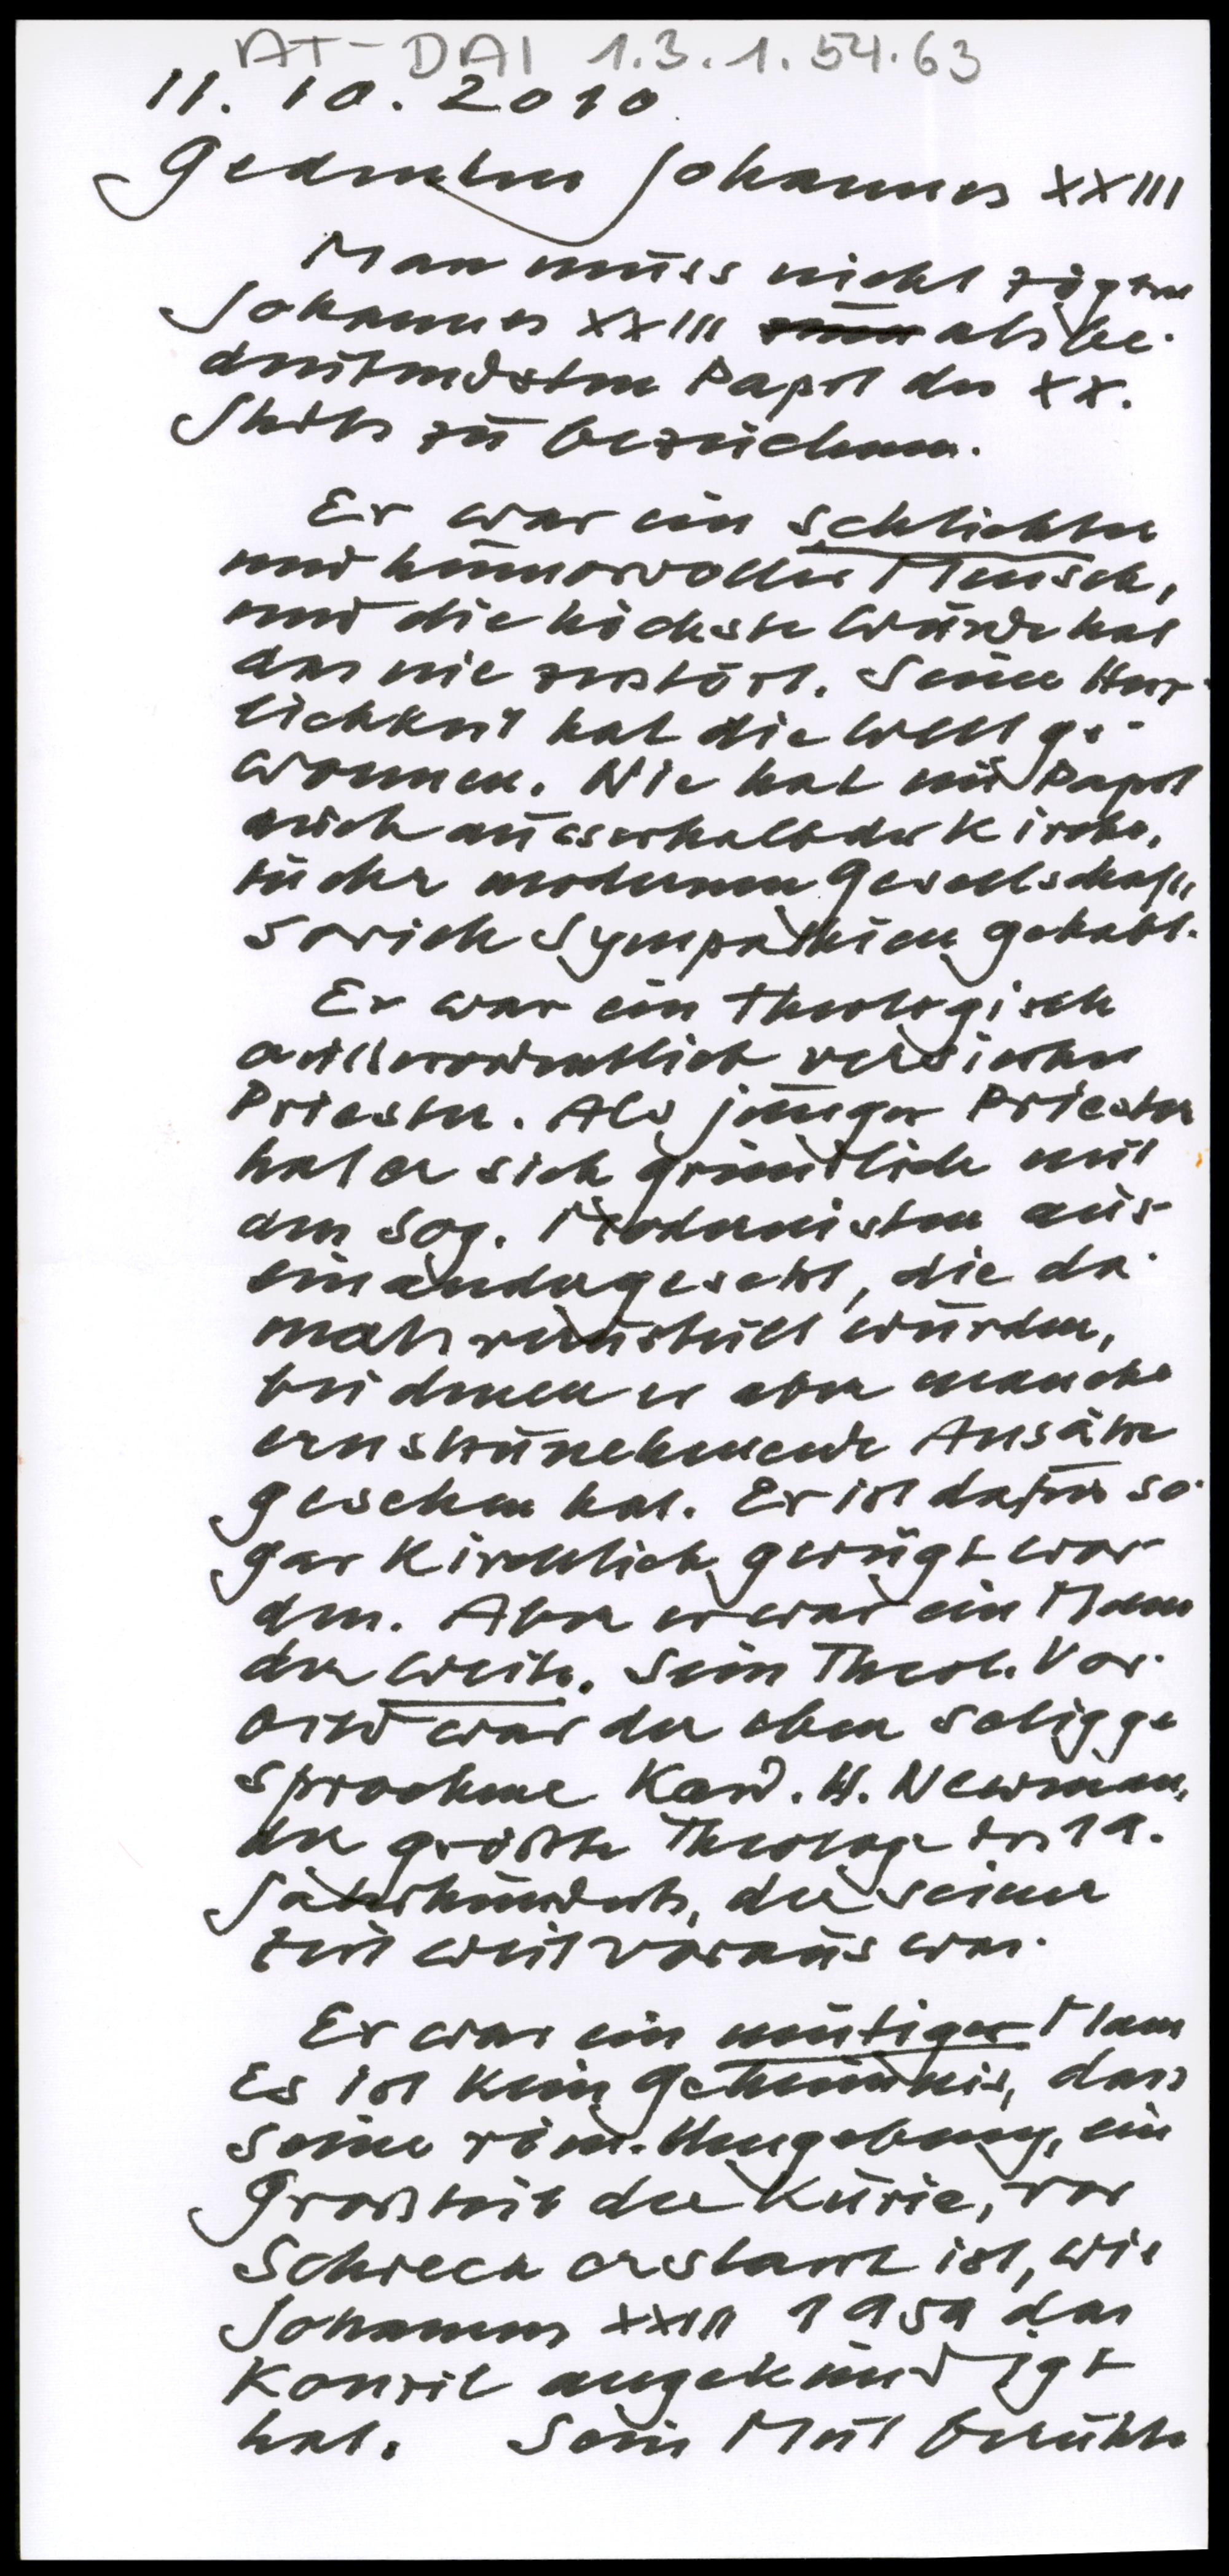 AT-DAI 1.3.1.54.63
11. 10. 2010
Gedenken Johannes XXIII
Man muss nicht zögern
Johannes XXIII als be-
deutendsten Papst des XX.
Jhdts zu bezeichnen.
Er war ein schlichter
und humorvoller Mensch,
und die höchste Würde hat
das nie zerstört. Seine Herz-
lichkeit hat die Welt ge-
wonnen. Nie hat ein Papst
auch ausserhalb der Kirche,
in der modernen Gesellschaft
soviele Sympathien gehabt.
Er war ein theologisch
ausserordentlich versierter
Priester. Als junger Priester
hat er sich gründlich mit
den sog. Modernisten aus-
einandergesetzt, die da-
mals verurteilt wurden,
bei denen er aber manche
ernstzunehmende Ansätze
gesehen hat. Er ist dafür so-
gar kirchlich gerügt wor-
den. Aber er war ein Mann
der Weite. Sein Theol. Vor-
bild war der eben seligge
sprochene Kard. H. Newman,
der größte Theologe des 19.
Jahrhunderts, der seiner
Zeit weit voraus war.
Er war ein mutiger Mann
Es ist kein Geheimnis, dass
seine röm. Umgebung, ein
Großteil der Kurie, vor
Schreck erstarrt ist, wie
Johannes XXIII 1959 das
Konzil angekündigt
hat. Sein Mut beruhte